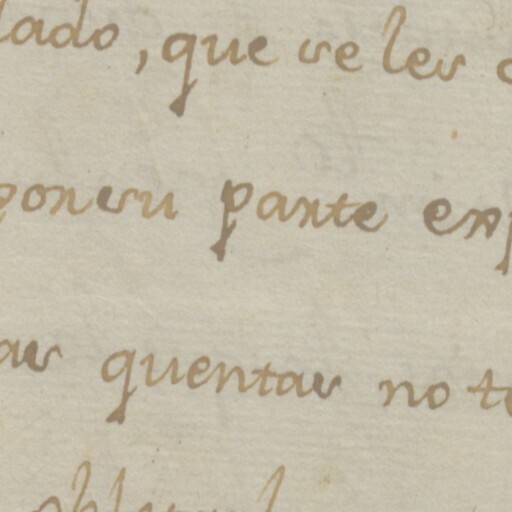 lado, que se les
por su parte exp
as quentas no te